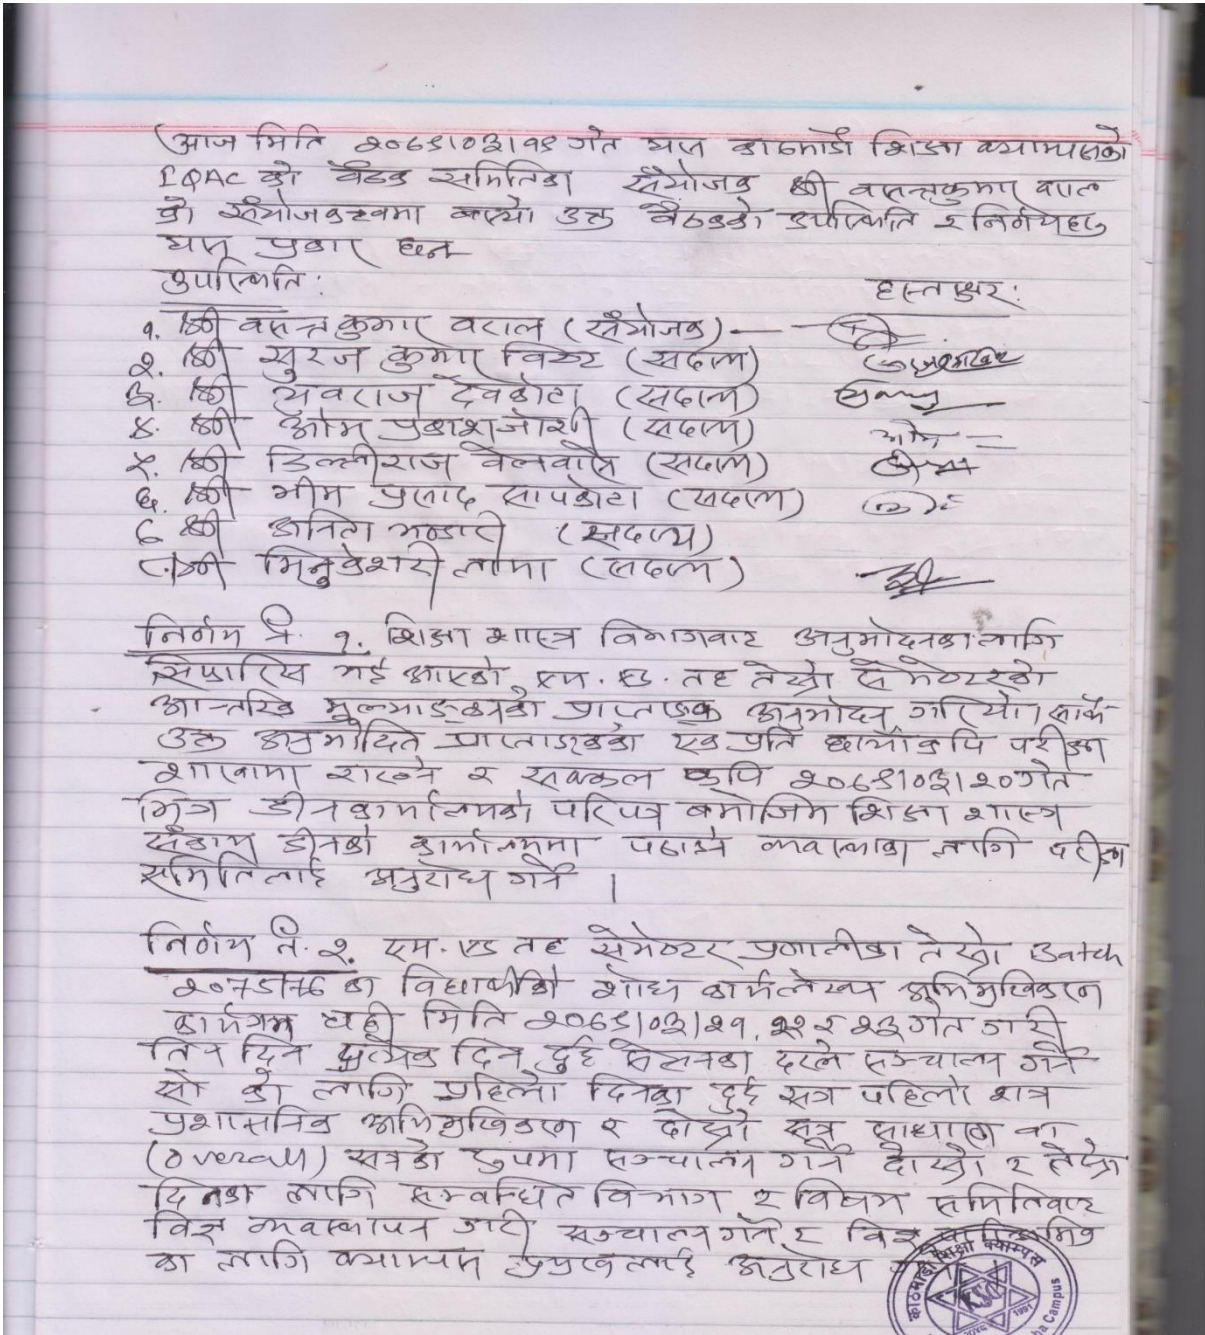 आज मिति २०७९।०३।१९ गते यस काठमाडौं शिक्षा क्याम्पसको
IQAC को बैठक समितिका संयोजक श्री बसन्तकुमार बराल
को संयोजकत्वमा बस्यो उक्त बैठकको उपस्थिति र निर्णयहरु
यस प्रकार छन
उपस्थिति:
हस्ताक्षर:
१. श्री बसन्त कुमार बराल (संयोजक)
२. श्री सुरज कुमार विष्ट (सदस्य)
३. श्री युवराज देवकोटा (सदस्य)
४. श्री ओम प्रकाश जोशी (सदस्य)
५. श्री डिल्लीराज वेलवासे (सदस्य)
६. श्री भीम प्रसाद सापकोटा (सदस्य)
७ श्री अनिता भण्डारी (सदस्य)
८. श्री तामा (सदस्य)
निर्णय नं. १. शिक्षा शास्त्र विभागबाट अनुमोदनका लागि
सिफारिस भई आएको एम. एड. तह तेस्रो सेमेष्टरको
आन्तरिक मूल्याङ्कनको प्राप्ताङ्क अनुमोदन गरियो। साथै
उक्त अनुमोदित प्राप्ताङ्कको एक प्रति छायाँकपि परीक्षा
शाखामा राख्ने र सक्कल कपि २०७९।०३।२० गते
भित्र डीन कार्यालयको परिपत्र बमोजिम शिक्षा शास्त्र
संकाय डीनको कार्यालयमा पठाउने व्यवस्थाका लागि परीक्षा
समितिलाई अनुरोध गर्ने ।
निर्णय नं. २. एम. एड तह सेमेष्टर प्रणालीका तेस्रो Batch
२०७५/७६ का विद्यार्थीको शोध कार्यलेखन अभिमुखिकरण
कार्यक्रम यही मिति २०७९।०३।२१, २२ र २३ गते गरी
तिन दिन प्रत्येक दिन दुई सेसनका दरले सञ्चालन गर्ने
सो को लागि पहिलो दिनका दुई सत्र पहिलो सत्र
प्रशासनिक अभिमुखिकरण र दोस्रो सत्र साधारण वा
(overall) सत्रको रुपमा सञ्चालन गर्ने दोस्रो र तेस्रो
दिनका लागि सम्बन्धित विभाग र विषय समितिबाट
विज्ञ व्यवस्थापन गरी सञ्चालन गर्ने र विज्ञ
का लागि क्याम्पस प्रमुखलाई अनुरोध
काठमाडौं शिक्षा क्याम्पस
KSC
1991
Campus